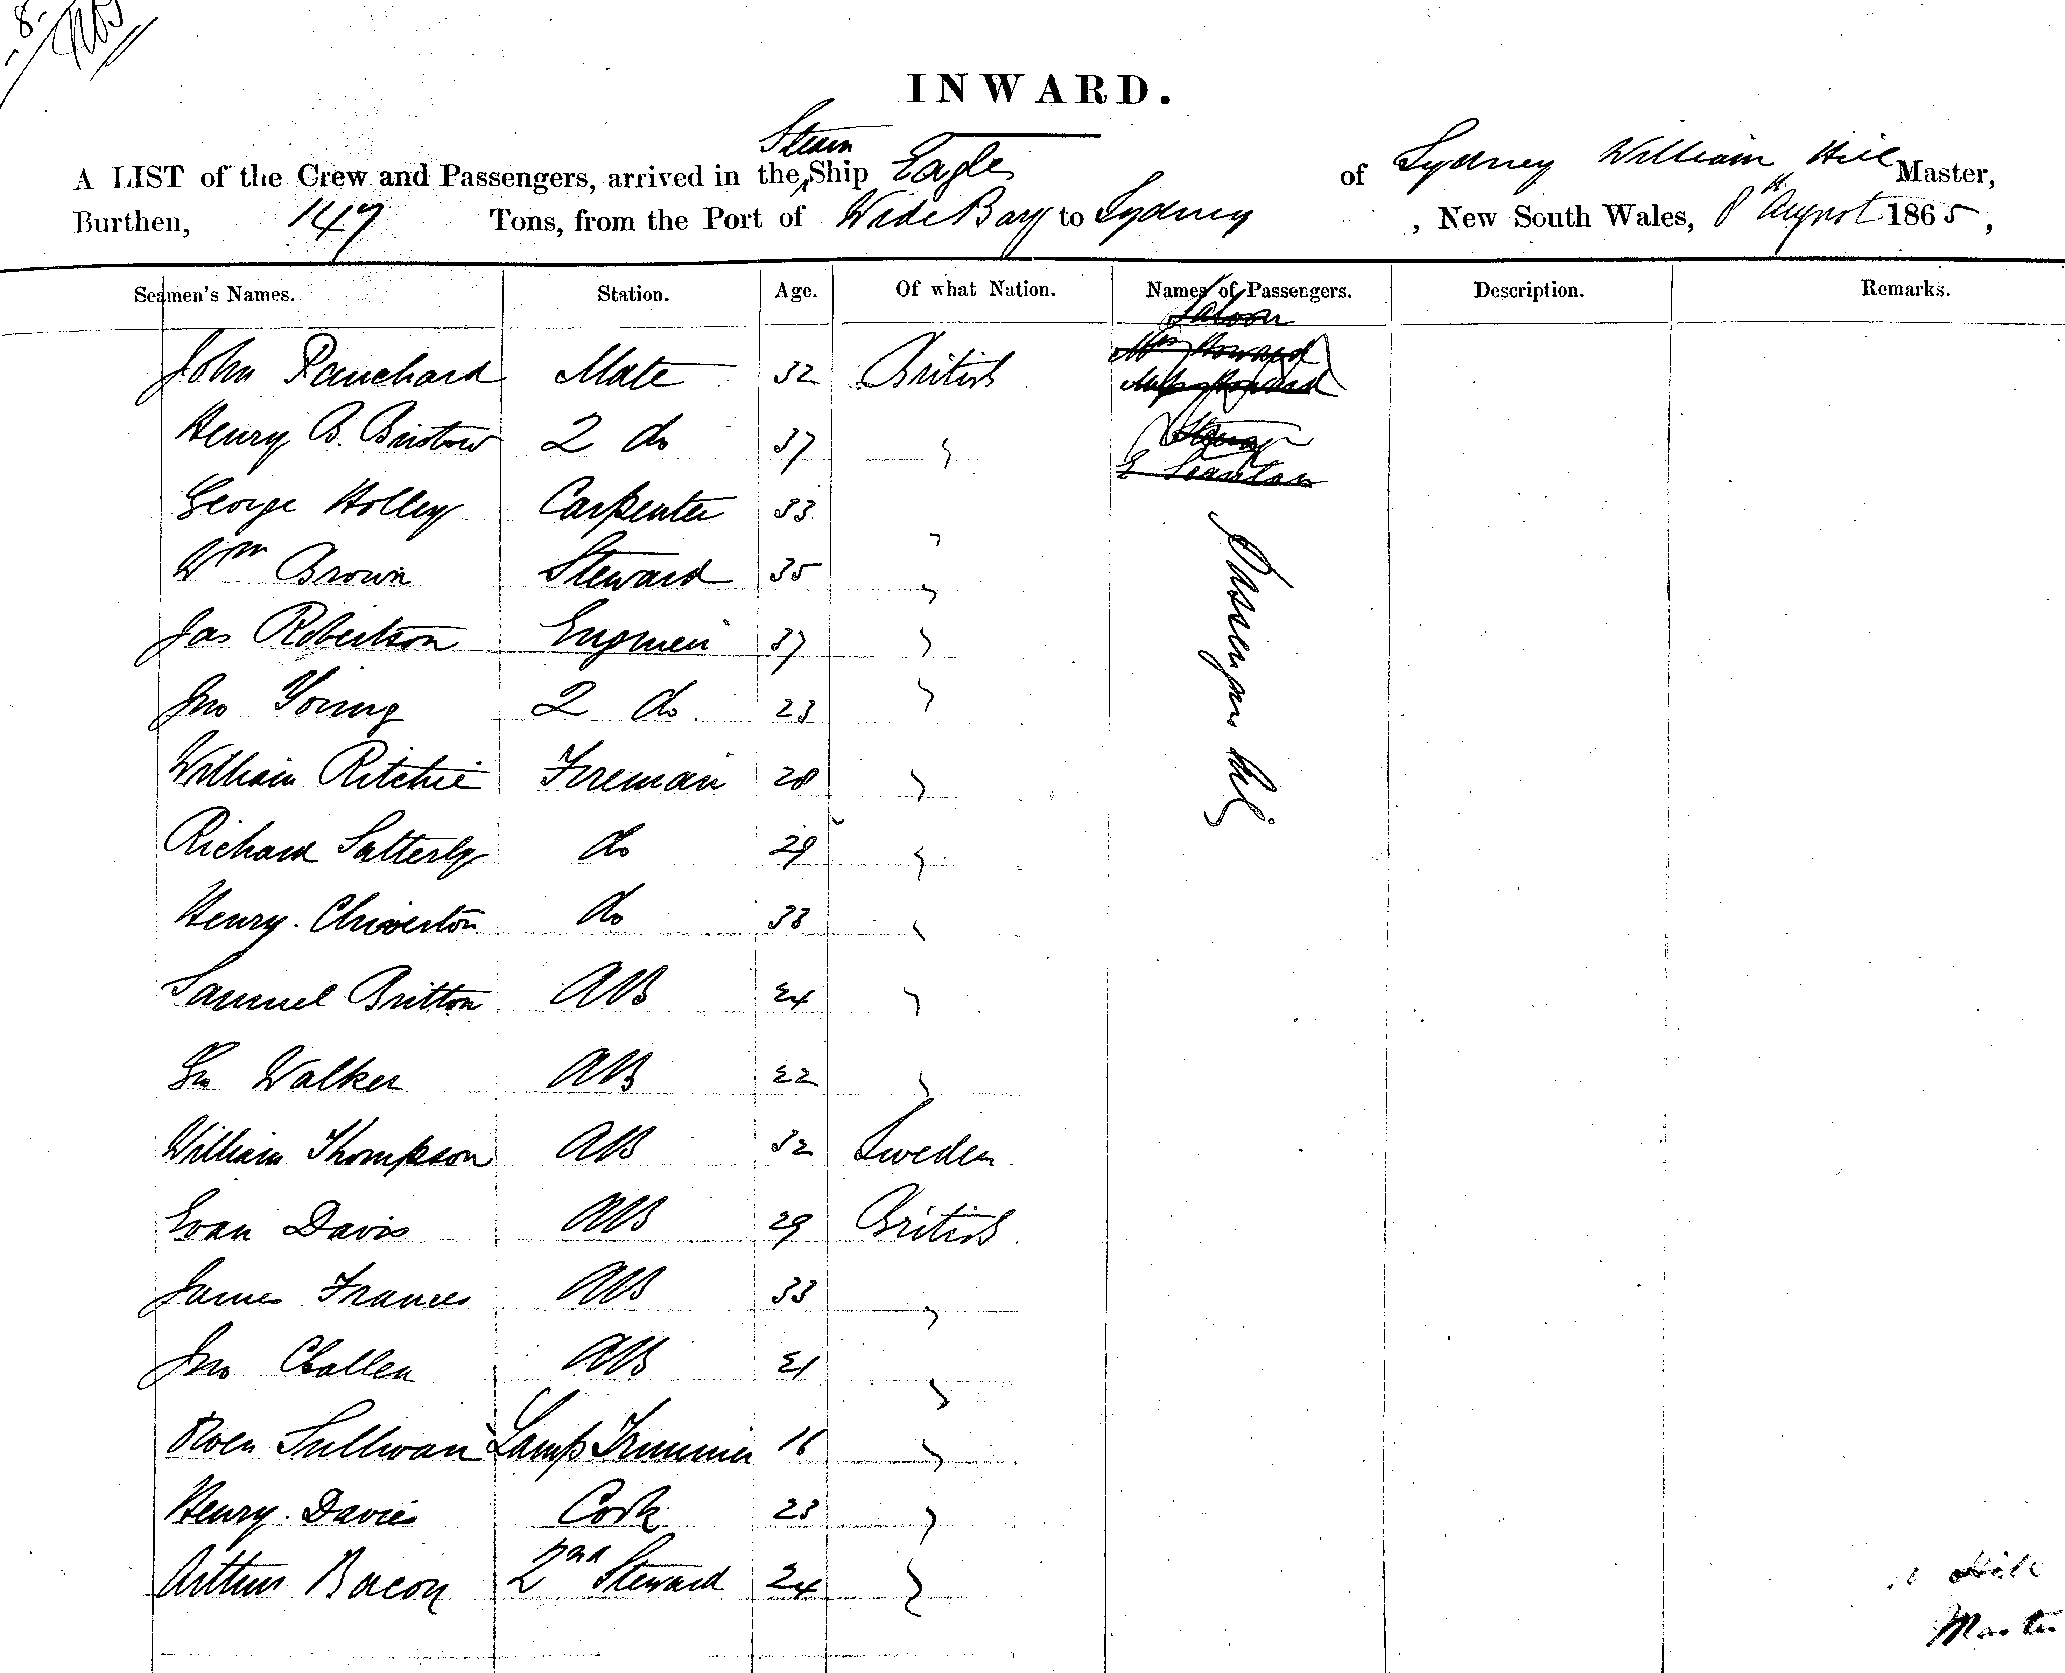 INWARD.
A LIST of the Crew and Passengers, arrived in the Steam Ship Eagle of Sydney William Hill Master,
Burthen, 147 Tons, from the Port of Wide Bay to Sydney, New South Wales, 8th August 1865,
Seamen's Names. Station. Age. Of what Nation. Names of Passengers. Description. Remarks.
Saloon
John Panchard Mate 32 British
Henry B. Bristow 2 do 37 "
E Scanlan
George Holley Carpenter 33 "
Wm Brown Steward 35 "
Jas Robertson Engineer 37 "
Jno Young 2 do 23 "
William Ritchie Fireman 28 "
Richard Satterly do 29 "
Henry Chiverton do 33 "
Samuel Britton AB 24 "
Walker AB 22 "
William Thompson AB 32 Sweden
Evan Davis AB 29 British
James Frances AB 33 "
Jno Challen AB 21 "
Sullivan Lamp Trimmer 16 "
Henry Davies Cook 23 "
Arthur Bacon 2nd Steward 24 "
Passengers
Hill
Master